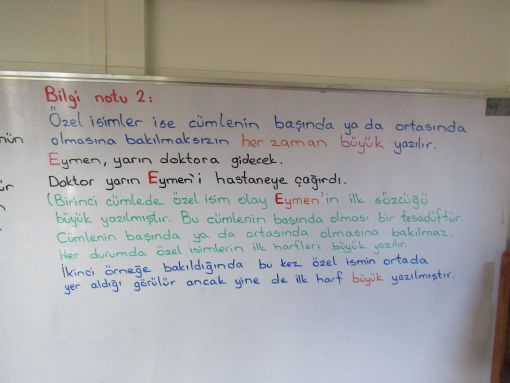 Bilgi notu 2:
Özel isimler ise cümlenin başında ya da ortasında
olmasına bakılmaksızın her zaman büyük yazılır.
Eymen, yarın doktora gidecek.
Doktor yarın Eymen'i hastaneye çağırdı.
(Birinci cümlede özel isim olay Eymen'in ilk sözcüğü
büyük yazılmıştır. Bu cümlenin başında olması bir tesadüftür.
Cümlenin başında ya da ortasında olmasına bakılmaz.
Her durumda özel isimlerin ilk harfleri büyük yazılır.
İkinci örneğe bakıldığında bu kez özel ismin ortada
yer aldığı görülür ancak yine de ilk harf büyük yazılmıştır.